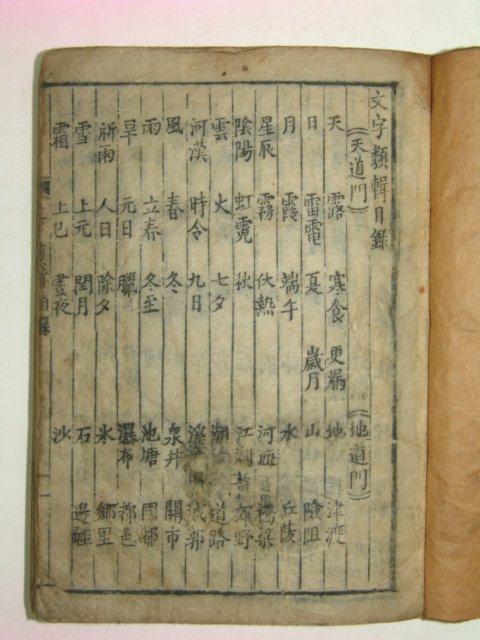 文字類輯目錄
(天道門) (地道門)
天 露 寒食 更漏 地 津渡
日 雷電 夏 歲月 山 險阻
月 霞 端午 水 丘陵
星辰 霧 伏熱 河海 橋梁
陰陽 虹霓 秋 江湖 郊野
雲 火 七夕 潮 道路
河漢 時令 九日 溪 城郭
風 春 冬 泉井 關市
雨 立春 冬至 池塘 國都
旱 元日 臘 瀑布 都邑
祈雨 人日 除夕 氷 鄉里
雪 上元 閏月 石 邊疆
霜 上巳 晝夜 沙